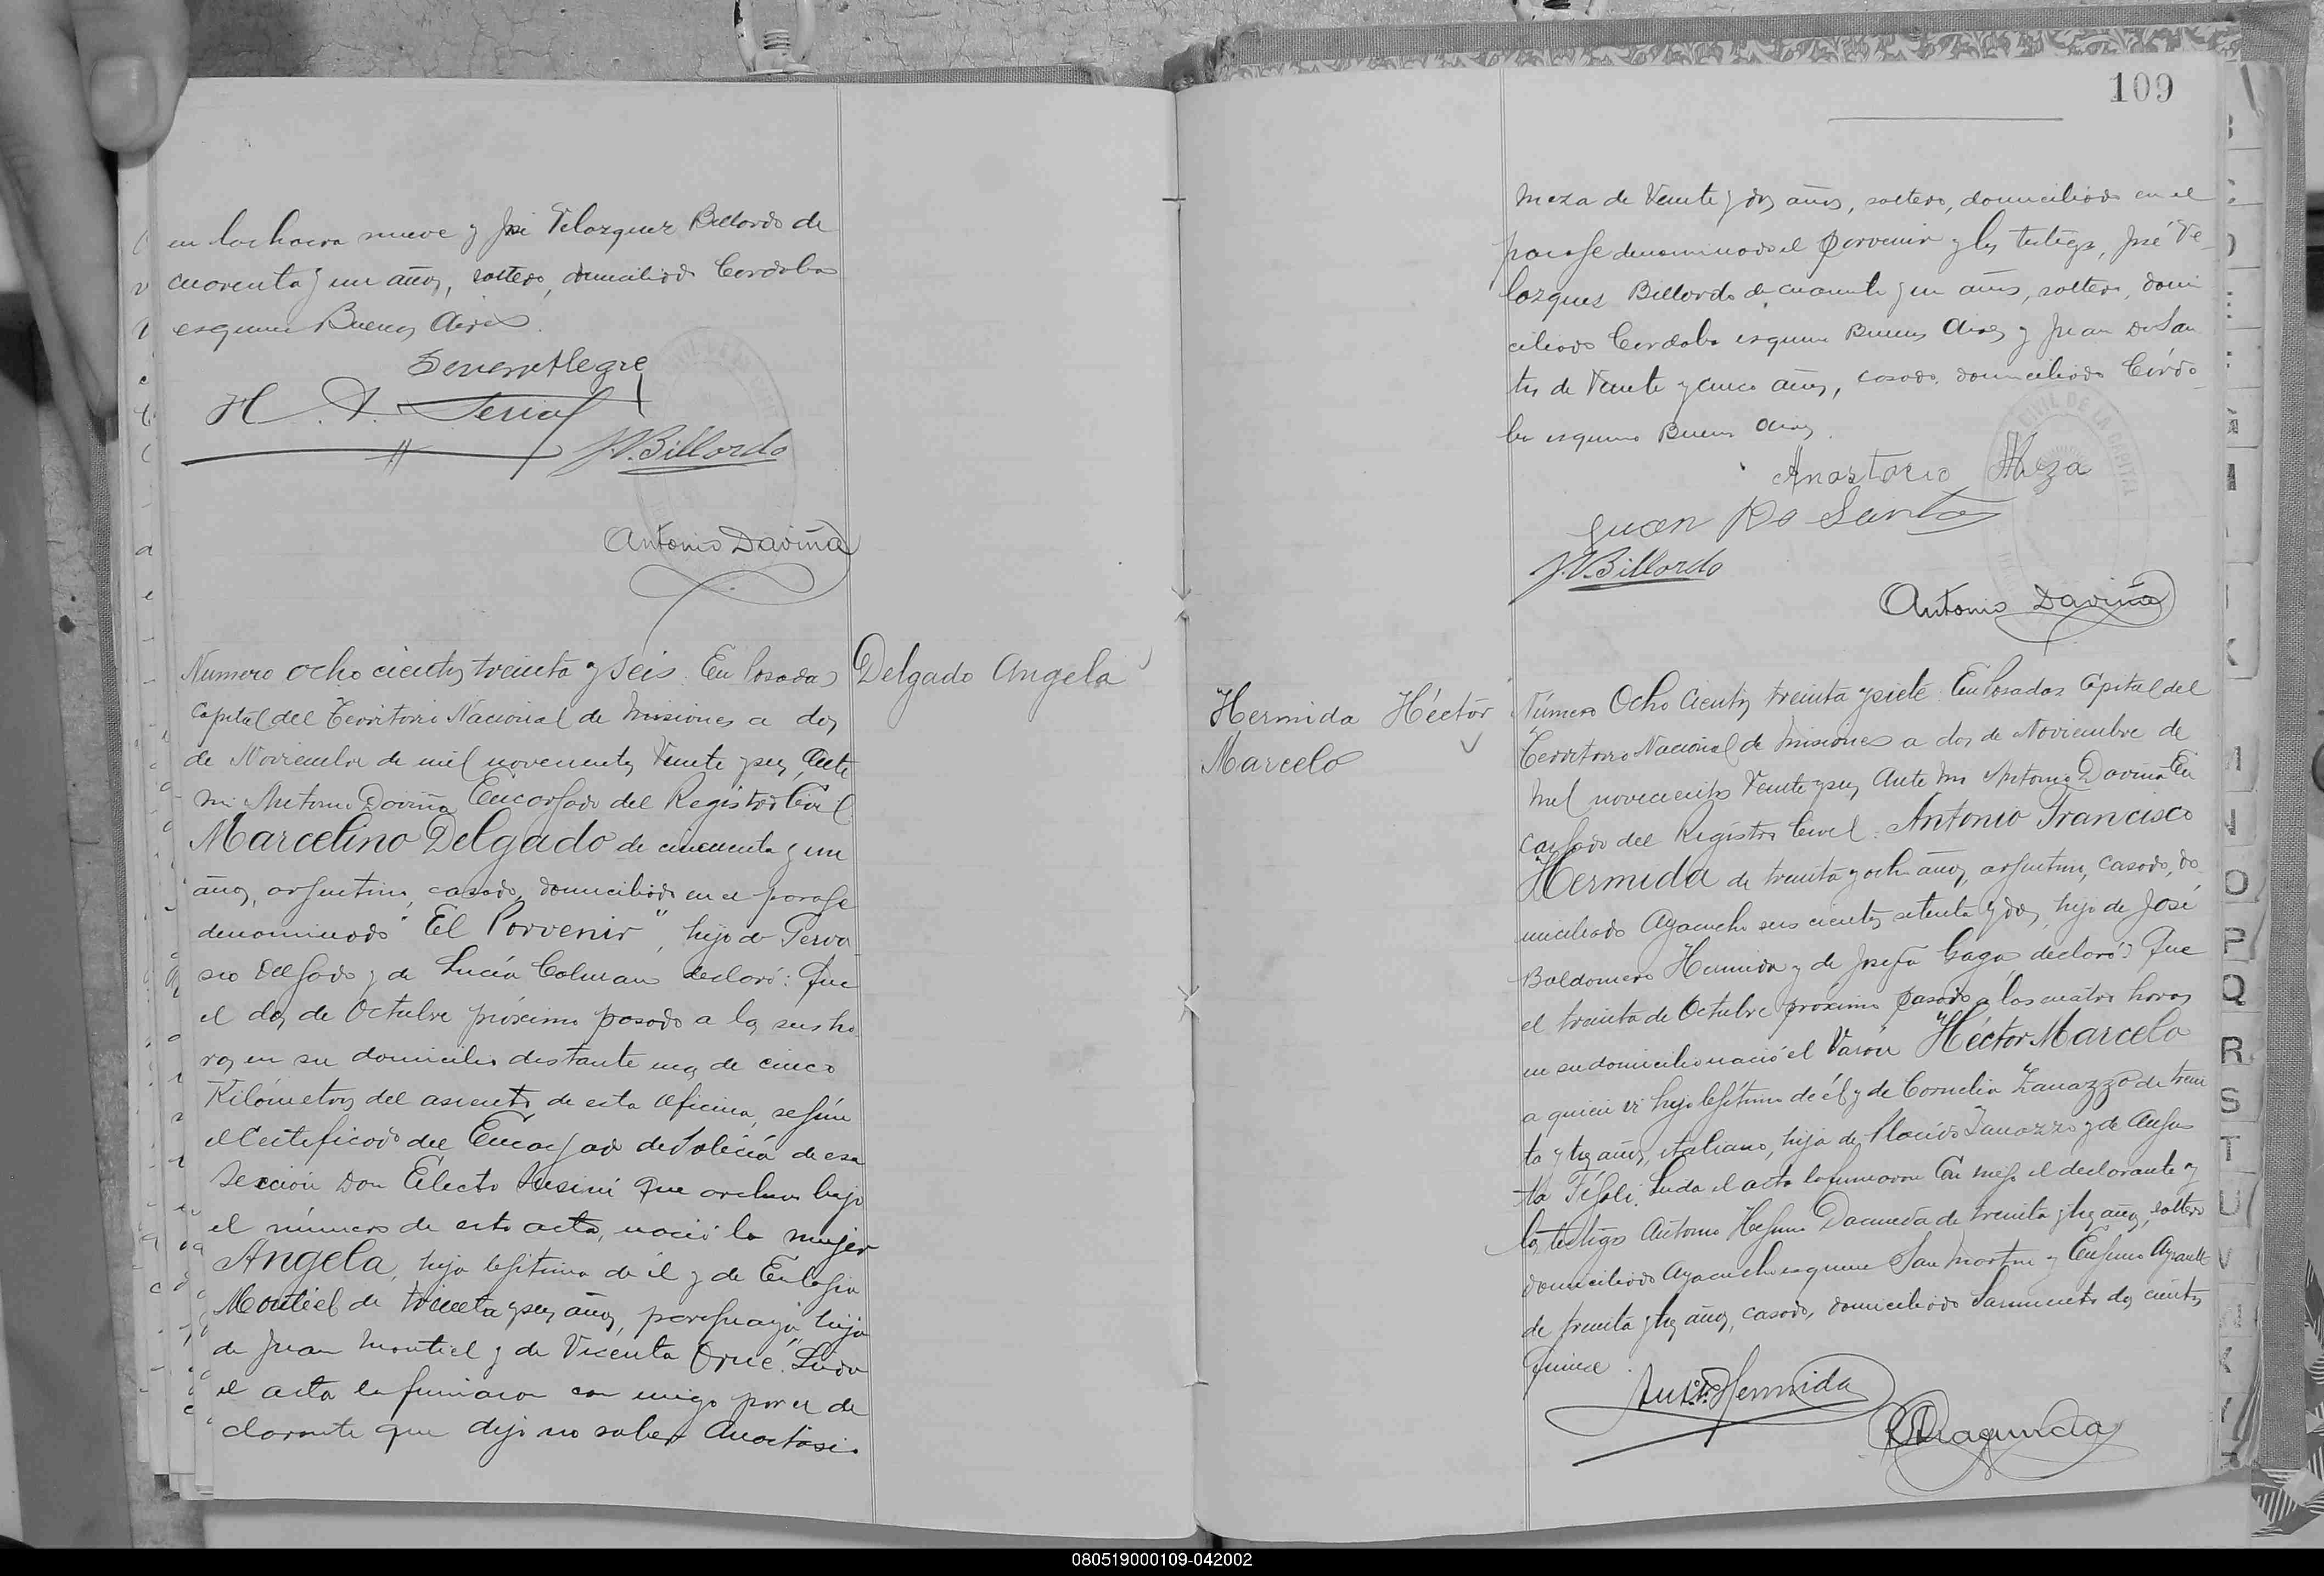 en la chacra nueve y José Velazquez Billordo de
cuarenta y un años, soltero, domiciliado Cordoba
esquina Buenos Aires.
H. A. Serial
J.V. Billordo
Antonio Daviña
Delgado Angela
Numero ocho cientos treinta y seis. En Posadas
Capital del Territorio Nacional de Misiones a dos
de Noviembre de mil novecientos veinte y seis, Ante
mi Antonio Daviña Encargado del Registro Civil
Marcelino Delgado de cincuenta y un
años, argentino, casado, domiciliado en el paraje
denominado "El Porvenir", hijo de Gerva
sio Delgado y de Lucía Colman declaró: Que
el dos de Octubre próximo pasado a las seis ho
ras en su domicilio distante mas de cinco
Kilómetros del asiento de esta Oficina, según
el Certificado del Encargado de Policía de esa
Sección Don Electo que archivo bajo
el número de esta acta, nació la mujer
Angela, hija legítima de él y de Eulogia
Montiel de treinta y seis años, paraguaya, hija
de Juan Montiel y de Vicenta Orué. Leida
el acta la firmaron con migo por el de
clarante que dijo no saber Anastasio
109
Meza de veinte y dos años, soltero, domiciliado en el
paraje denominado el Porvenir y los testigos, José Ve
lazquez Billordo de cuarenta y un años, soltero, domi
ciliado Cordoba esquina Buenos Aires y Juan Do San
tos de veinte y cinco años, casado, domiciliado Córdo
ba esquina Buenos Aires.
Anastacio Meza
Juan Do Santos
J.V. Billordo
Antonio Daviña
Hermida Héctor
Marcelo
Número Ocho Cientos treinta y siete. En Posadas Capital del
Territorio Nacional de Misiones a dos de Noviembre de
mil novecientos veinte y seis, Ante mi Antonio Daviña En
cargado del Registro Civil. Antonio Francisco
Hermida de treinta y ocho años, argentino, casado, do
miciliado Ayacucho seis cientos setenta y dos, hijo de José
Baldomero Hermida y de Josefa Gaga declaró: Que
el treinta de Octubre próximo pasado a las cuatro horas
en su domicilio nació el varón Héctor Marcelo
a quien vi hijo legítimo de él y de Cornelia Zanazzo de trein
ta y tres años, italiana, hija de Placido Zanazzo y de Augus
ta Tifoli. Leida el acta la firmaron con migo el declarante y
los testigos Antonio de treinta y tres años, soltero
domiciliado Ayacucho esquina San Martin y Eugenio
de treinta y tres años, casado, domiciliado Sarmiento dos cientos
quince.
Ant. F. Hermida